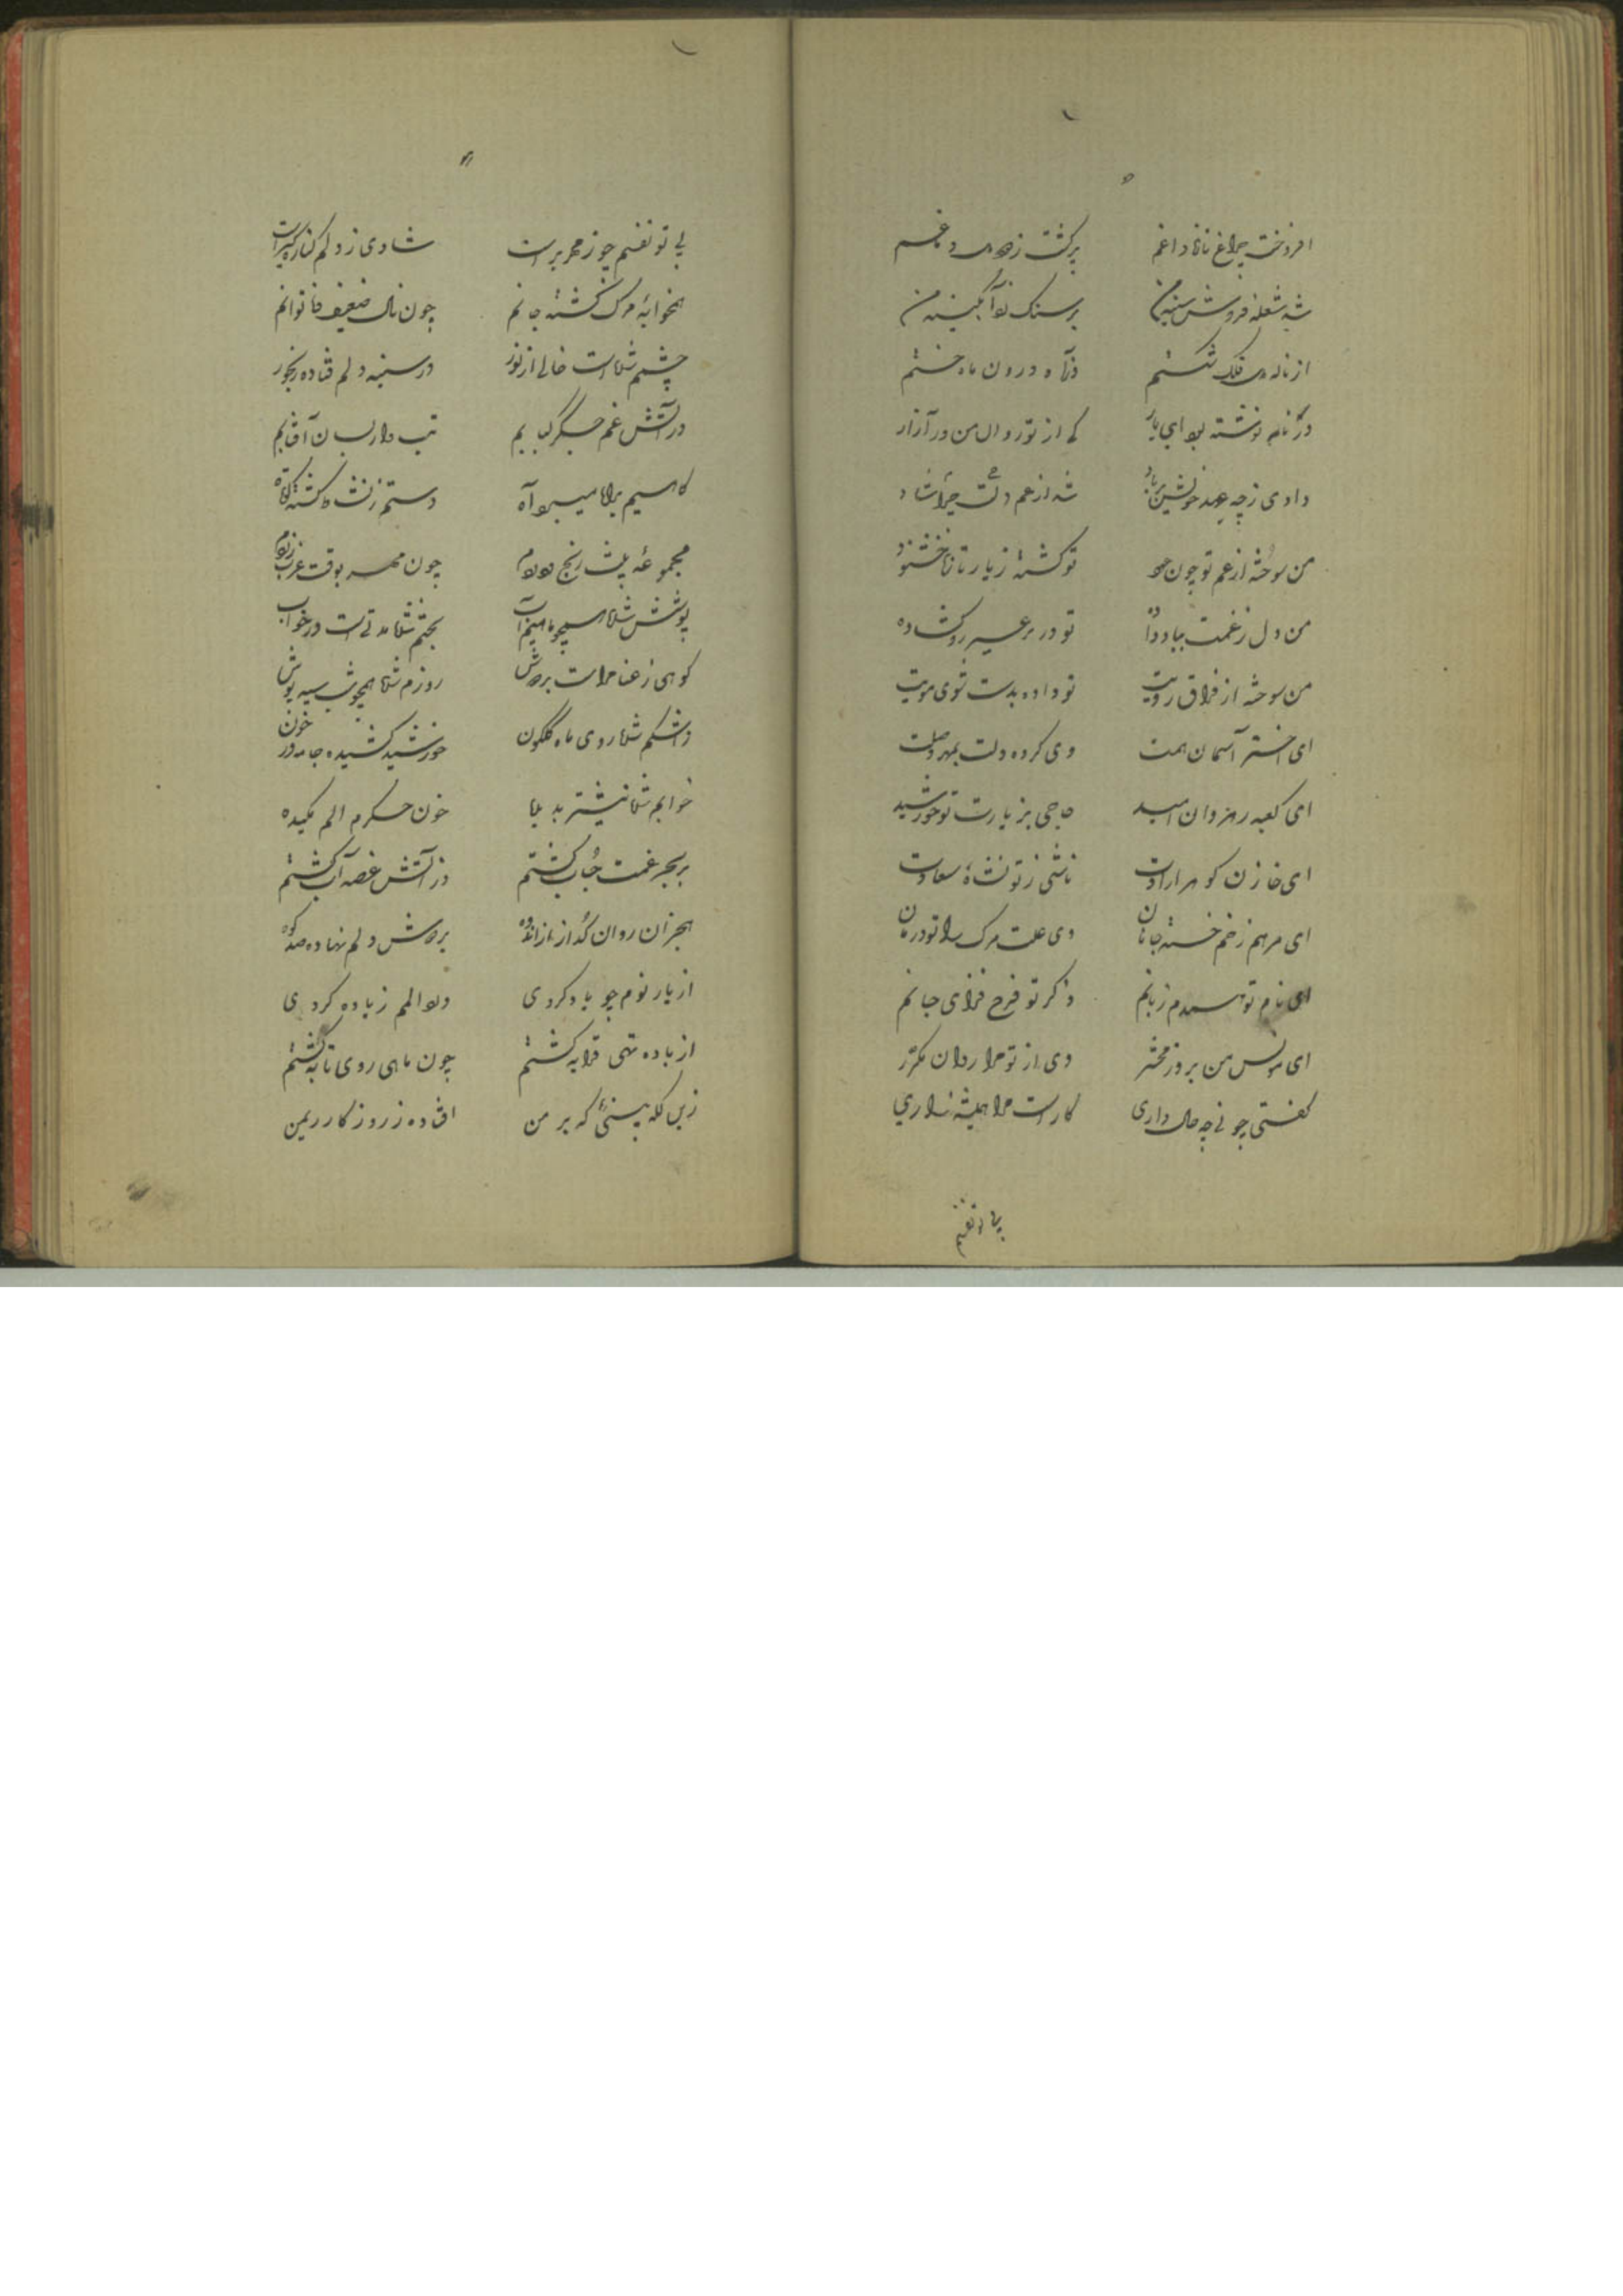 افروخت چراغ تازه داغم برکشت ز دماغم
شد شعله فروش سینه من بر سنک زد آبکینه من
از ناله دل فلک شکستم وز آه درون ماه خستم
در نامه نوشته بود ای یار که از تو روان من در آزار
دادی ز چه عهد خویش بر باد شد از غم دلت چرا شاد
من سوخته از غم تو چون عود تو کشته ز یار تازه خشنود
من دل ز غمت بباد داده تو در بر غیر رو کشاده
من سوخته از فراق رویت تو داده بدست شوی مویت
ای اختر آسمان همت وی کرده دلت بمهر وصلت
ای کعبه رهروان امید حاجی بزیارت تو خورشید
ای خازن کوهر ارادت ناشی ز تو نشاه سعادت
ای مرهم زخم خسته جانان وی علت مرک را تو درمان
ای نام تو همدم زبانم ذکر تو فرح فزای جانم
ای مونس من بروز محشر وی از تو مرا روان مکرر
کفتی چونی چه حال داری کار است مرا همیشه زاری
بی تو نفسم
بی تو نفسم چو زمهریر است شادی ز دلم کناره کیر است
همخوابه مرک کشته جانم چون نال ضعیف ناتوانم
چشمم شده است خالی از نور در سینه دلم فتاده رنجور
در آتش غم جکر کبابم تب دار بسان آفتابم
کاهیده دستم ز نشاط کشته کوتاه
مجموعه رنج چون مهر بوقت غرب زردم
پوشش شده بختم شده مدتی است در خواب
کوهی ز عنا مراست بر دوش روزم شده همچو شب سیه پوش
ز اشکم شده روی ماه کلکون خورشید کشیده جامه در خون
خوابم شده نیشتر بدیده خون جکرم الم مکیده
بر بحر غمت حباب کشتم در آتش غصه آب کشتم
هجران روان کداز ز اندوه بر دوش دلم نهاده صد کوه
از یار نوم چو یاد کردی درد المم زیاده کردی
از باده تهی قرابه کشتم چون ماهی روی تابه کشتم
زین لکه پیسئی که بر من افتاده ز روزکار ریمن